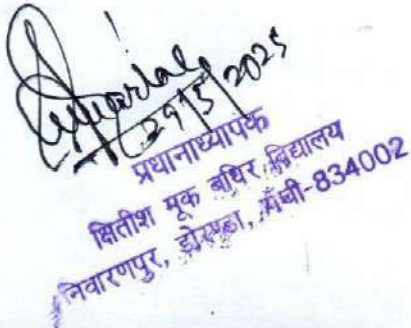 29/5/2025
प्रधानाध्यापक
क्षितीश मूक बधिर विद्यालय
निवारणपुर, डोरण्डा, राँची-834002